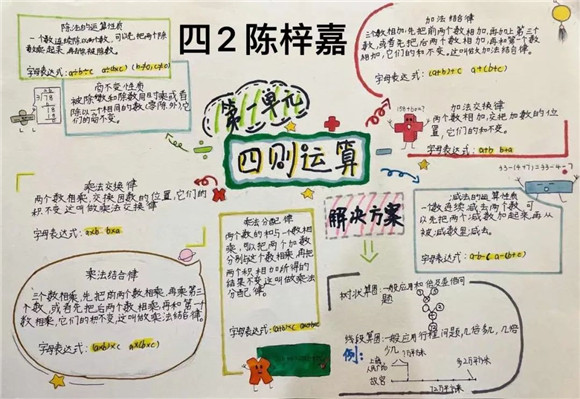 四2陈梓嘉
第一单元
四则运算
除法的运算性质
一个数连续除以两个数,可以先把两个除
数乘起来,再做被除数.
字母表达式:
商不变性质
被除数和除数同时乘或者
除以一个相同的数(零除外),它
们的商不变。
加法结合律
三个数相加,先把前两个数相加,再加上第三个
数,或者先把后两个数相加,再和第一个数
相加,它们的和不变。这叫做加法结合律。
字母表达式:(a+b)+c a+(b+c)
加法交换律
两个数相加,交换加数的位
置,它们的和不变。
字母表达式:a+b b+a
乘法交换律
两个数相乘,交换因数的位置,它们的
积不变,这叫做乘法交换律
字母表达式:a×b b×a
乘法结合律
三个数相乘,先把前两个数相乘,再乘第三个
数,或者先把后两个数相乘,再和第一个
数相乘,它们的积不变,这叫做乘法结合律。
字母表达式:(a×b)×c a×(b×c)
乘法分配律
两个数的和与一个数相
乘,可以把两个加数
分别与这个数相乘,再把
两个积相加所得的
结果不变这叫做乘法
分配律。
字母表达式:
减法的运算性质
一个数连续减去两个数,可
以先把两个减数加起来,再从
被减数里减去。
字母表达式:a-b-c a-(b+c)
解决方案
树状算图:一般应用和倍及差倍问
题
线段算图:一般应用行程问题,几倍多几,几倍
少几
例:
故宫
72万平方米